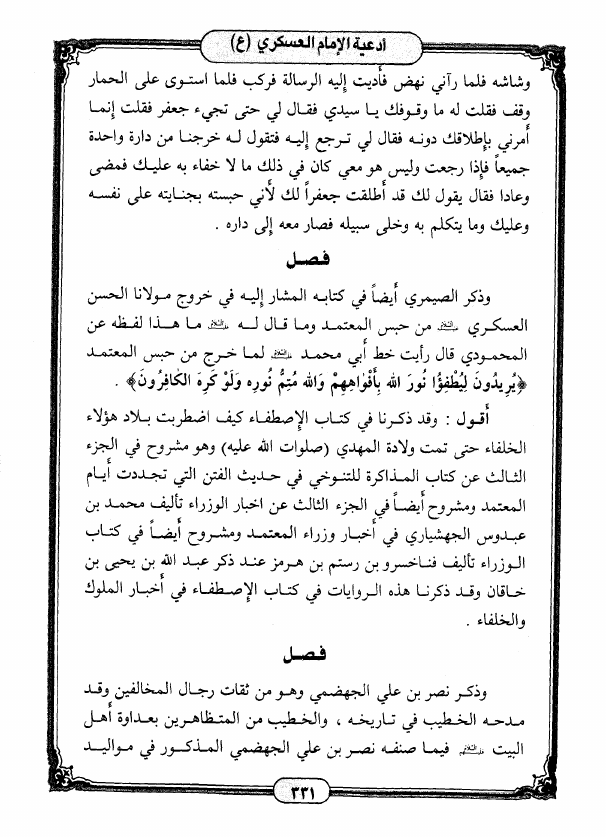 أدعية الإمام العسكري (ع)
وشاشه فلما رآني نهض فأديت إليه الرسالة فركب فلما استوى على الحمار
وقف فقلت له ما وقوفك يا سيدي فقال لي حتى تجيء جعفر فقلت إنما
أمرني بإطلاقك دونه فقال لي ترجع إليه فتقول له خرجنا من دارة واحدة
جميعاً فإذا رجعت وليس هو معي كان في ذلك ما لا خفاء به عليك فمضى
وعادا فقال يقول لك قد أطلقت جعفراً لك لأني حبسته بجنايته على نفسه
وعليك وما يتكلم به وخلى سبيله فصار معه إلى داره .
فصل
وذكر الصيمري أيضاً في كتابه المشار إليه في خروج مولانا الحسن
العسكري من حبس المعتمد وما قال له ما هذا لفظه عن
المحمودي قال رأيت خط أبي محمد لما خرج من حبس المعتمد
﴿يُرِيدُونَ لِيُطْفِؤُا نُورَ الله بِأَفْوَاهِهِمْ وَالله مُتِمُّ نُورِهِ وَلَوْ كَرِهَ الكَافِرُونَ﴾ .
أقول : وقد ذكرنا في كتاب الإصطفاء كيف اضطربت بلاد هؤلاء
الخلفاء حتى تمت ولادة المهدي (صلوات الله عليه) وهو مشروح في الجزء
الثالث عن كتاب المذاكرة للتنوخي في حديث الفتن التي تجددت أيام
المعتمد ومشروح أيضاً في الجزء الثالث عن اخبار الوزراء تأليف محمد بن
عبدوس الجهشياري في أخبار وزراء المعتمد ومشروح أيضاً في كتاب
الوزراء تأليف فناخسرو بن رستم بن هرمز عند ذكر عبد الله بن يحيى بن
خاقان وقد ذكرنا هذه الروايات في كتاب الإصطفاء في أخبار الملوك
والخلفاء .
فصل
وذكر نصر بن علي الجهضمي وهو من ثقات رجال المخالفين وقد
مدحه الخطيب في تاريخه ، والخطيب من المتظاهرين بعداوة أهل
البيت فيما صنفه نصر بن علي الجهضمي المذكور في مواليد
٣٣١